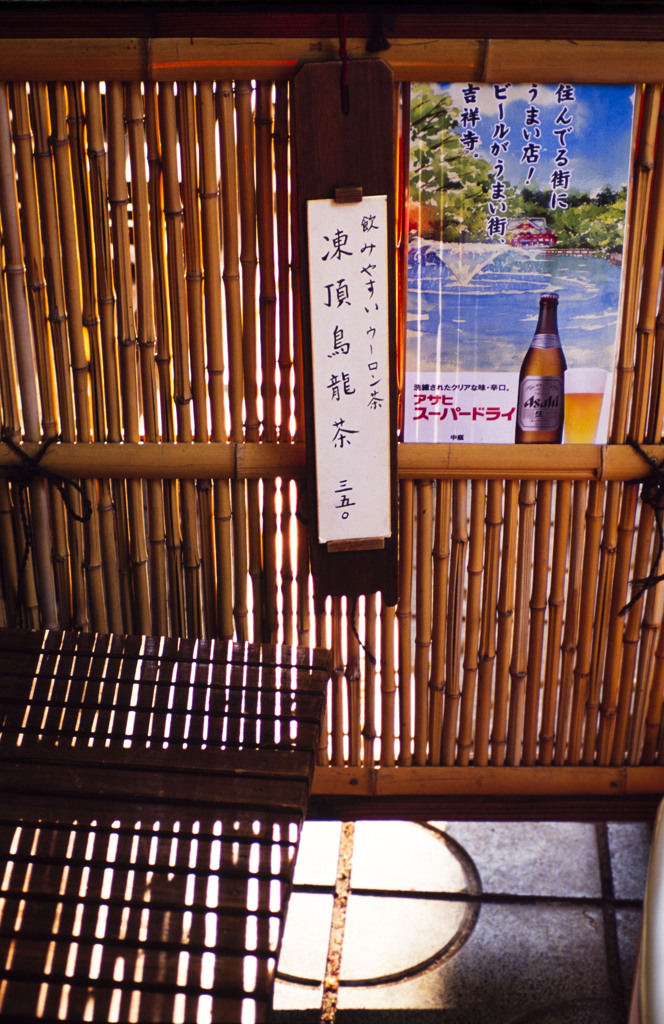 住んでる街に
うまい店!
ビールがうまい街、
吉祥寺.
飲みやすいウーロン茶
凍頂烏龍茶 三五〇
洗練されたクリアな味・辛口。
アサヒ
スーパードライ
Asahi
生